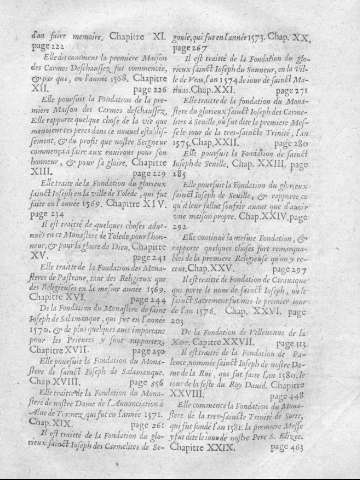 d'en faire memoire, Chapitre XI.
page 222
Elle dit comment la premiere Maison
des Carmes Deschaussez fut commencée,
& par qui, en l'année 1568, Chapitre
XII. page 226
Elle poursuit la Fondation de la pre-
miere Maison des Carmes deschaussez,
Elle rapporte quelque chose de la vie que
menoient les peres dans ce nouvel establis-
sement, & du profit que nostre Seigneur
commença a faire aux environs pour son
honneur, & pour sa gloire, Chapitre
XIII. page 229
Elle traite de la Fondation du glorieux
sainct Ioseph en la ville de Tolede, qui fut
faite en l'année 1569. Chapitre XIV.
page 234
Il est traité de quelques choses adve-
nuës en ce Monastere de Tolede, pour l'hon-
neur, & pour la gloire de Dieu, Chapitre
XV. page 241
Elle traite de la Fondation des Mona-
steres de Pastrane, tant des Religieux que
des Religieuses en la mesme année 1569.
Chapitre XVI. page 244
De la Fondation du Monastere de sainct
Ioseph de Salamanque, qui fut en l'année
1570. & de plusieurs avis important
pour les Prieures y sont rapportez,
Chapitre XVII. page 250
Elle poursuit la Fondation du Mona-
stere de sainct Ioseph de Salamanque,
Chap. XVIII. page 256
Elle traite de la Fondation du Mona-
stere de nostre Dame de l'Annonciation à
Alve de Tormez, qui fut en l'année 1571.
Chap. XIX. page 261
Il est traité de la Fondation du glo-
rieux sainct Ioseph des Carmelites de Se-
govie, qui fut en l'année 1573. Chap. XX.
page 267
Il est traité de la Fondation du glo-
rieux sainct Ioseph du Sauveur, en la Vil-
le de Veas, l'an 1574 le iour de sainct Ma-
thias. Chap. XXI. page 271
Elle traite de la fondation du Mona-
stere du glorieux sainct Ioseph des Carme-
lites à Seville, où fut dite la premiere Mes-
se le iour de la tres-saincte Trinité, l'an
1575, Chap. XXII. page 280
Elle poursuit la Fondation de sainct
Ioseph de Seville, Chap. XXIII, page
285
Elle poursuit la Fondation du glorieux
sainct Ioseph de Seville, & rapporte ce
qu'il en fallut souffrir avant que d'avoir
une maison propre. Chap. XXIV, page
292
Elle continuë la mesme Fondation, &
rapporte quelques choses fort remarqua-
bles de la premiere Religieuse qu'on y re-
ceut, Chap. XXV. page 297
Il est traité de Fondation de Caravaque
qui porte le nom de sainct Ioseph, où le
sainct Sacrement fut mis le premier iour
de l'an 1576. Chap. XXVI. page
303
De la Fondation de Villenueva de la
Xare. Chapitre XXVII. page 313
Il est traité de la Fondation de Pa-
lence, nommée sainct Ioseph de nostre Da-
me de la Ruë, qui fut faite l'an 1580, le
iour de la feste du Roy David. Chapitre
XXVIII. page 448
Elle commence la Fondation du Mona-
stere de la tres-saincte Trinité de Sorie,
qui fut fondé l'an 1581. la premiere Messe
y fut dite le iour de nostre Pere S. Elizée.
Chapitre XXIX. page 463